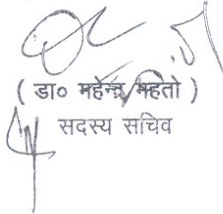 ( डा० महेन्द्र महतो )
सदस्य सचिव